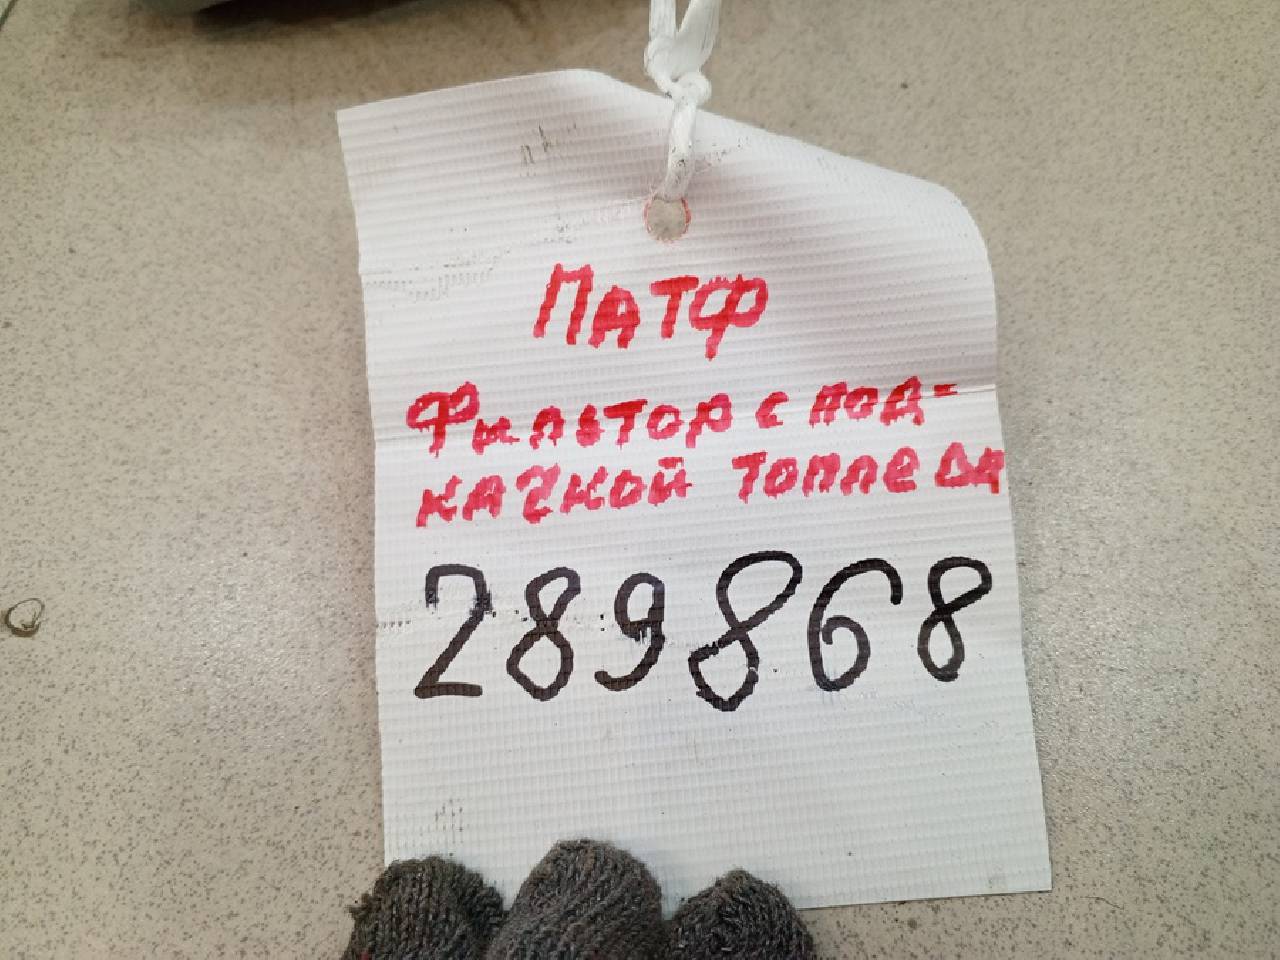 ПАТФ
Фильтор с под-
качкой топлева
289868